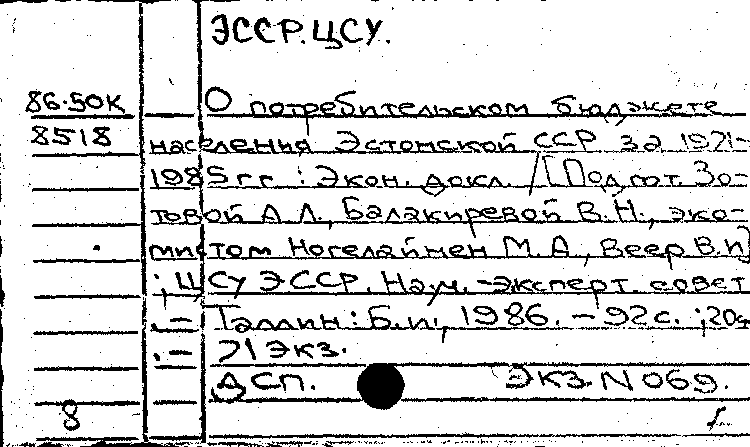 ЭССР. ЦСУ.
86-50К О потребительском бюджете
8518 населения Эстонской ССР за 1971-
1985 гг. : Экон. докл. / [Подгот. Зо-
товой А.Л., Балакиревой В.Н., эко-
мистом Ногелайнен М.А., Веер В.И]
; ЦСУ ЭССР. Науч.-эксперт. совет
. – Таллин : Б.и., 1986. – 92с. ; 20см
. – 71 экз.
ДСП. ЭКЗ. N 069.
8